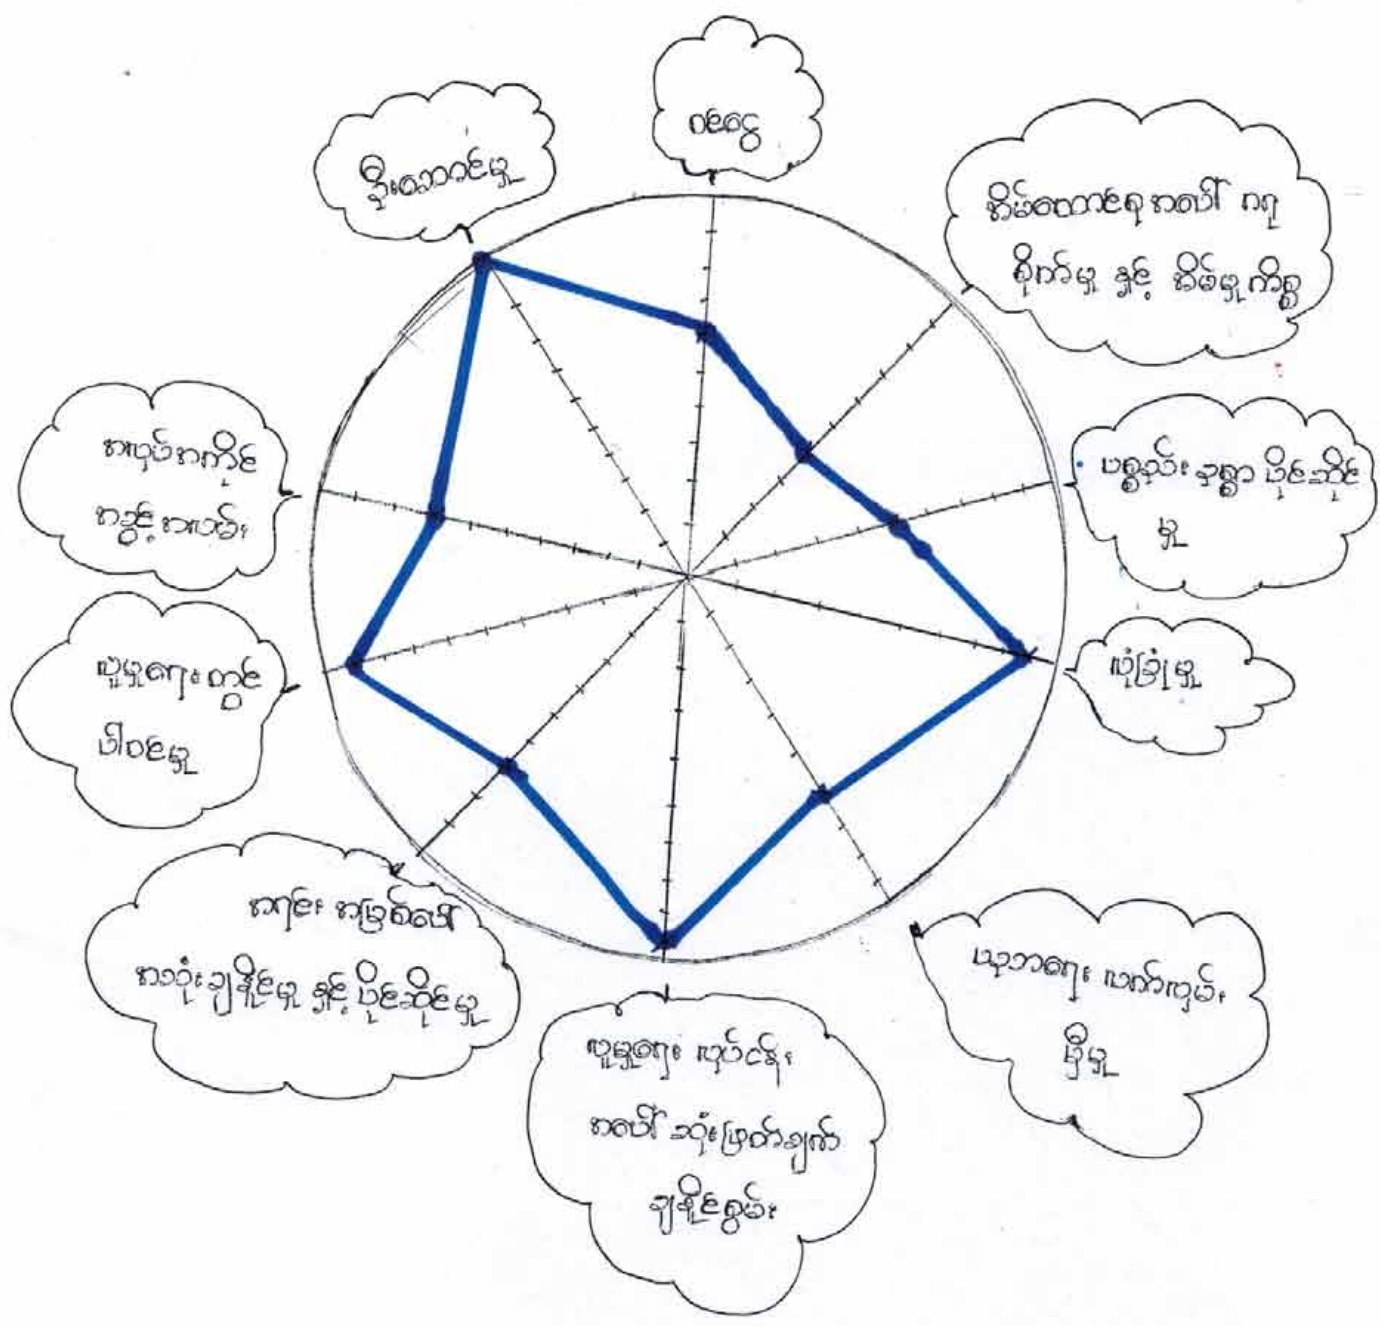 ဝင်ငွေ
အိမ်ထောင်ရေအပေါ် ဂရု
စိုက်မှု နှင့် အိမ်မှုကိစ္စ
ပစ္စည်း ဥစ္စာ ပိုင်ဆိုင်
မှု
လုံခြုံမှု
ယုဘရေး လက်လှမ်း
မှီမှု
လူမှုရေး လုပ်ငန်း
အပေါ် ဆုံးဖြတ်ချက်
ချနိုင်စွမ်း
အရင်း အမြစ်ပေါ်
အသုံးချနိုင်မှု နှင့် ပိုင်ဆိုင်မှု
လူမှုရေးတွင်
ပါဝင်မှု
အလုပ်အကိုင်
အခွင့်အလမ်း
ဦးဆောင်မှု